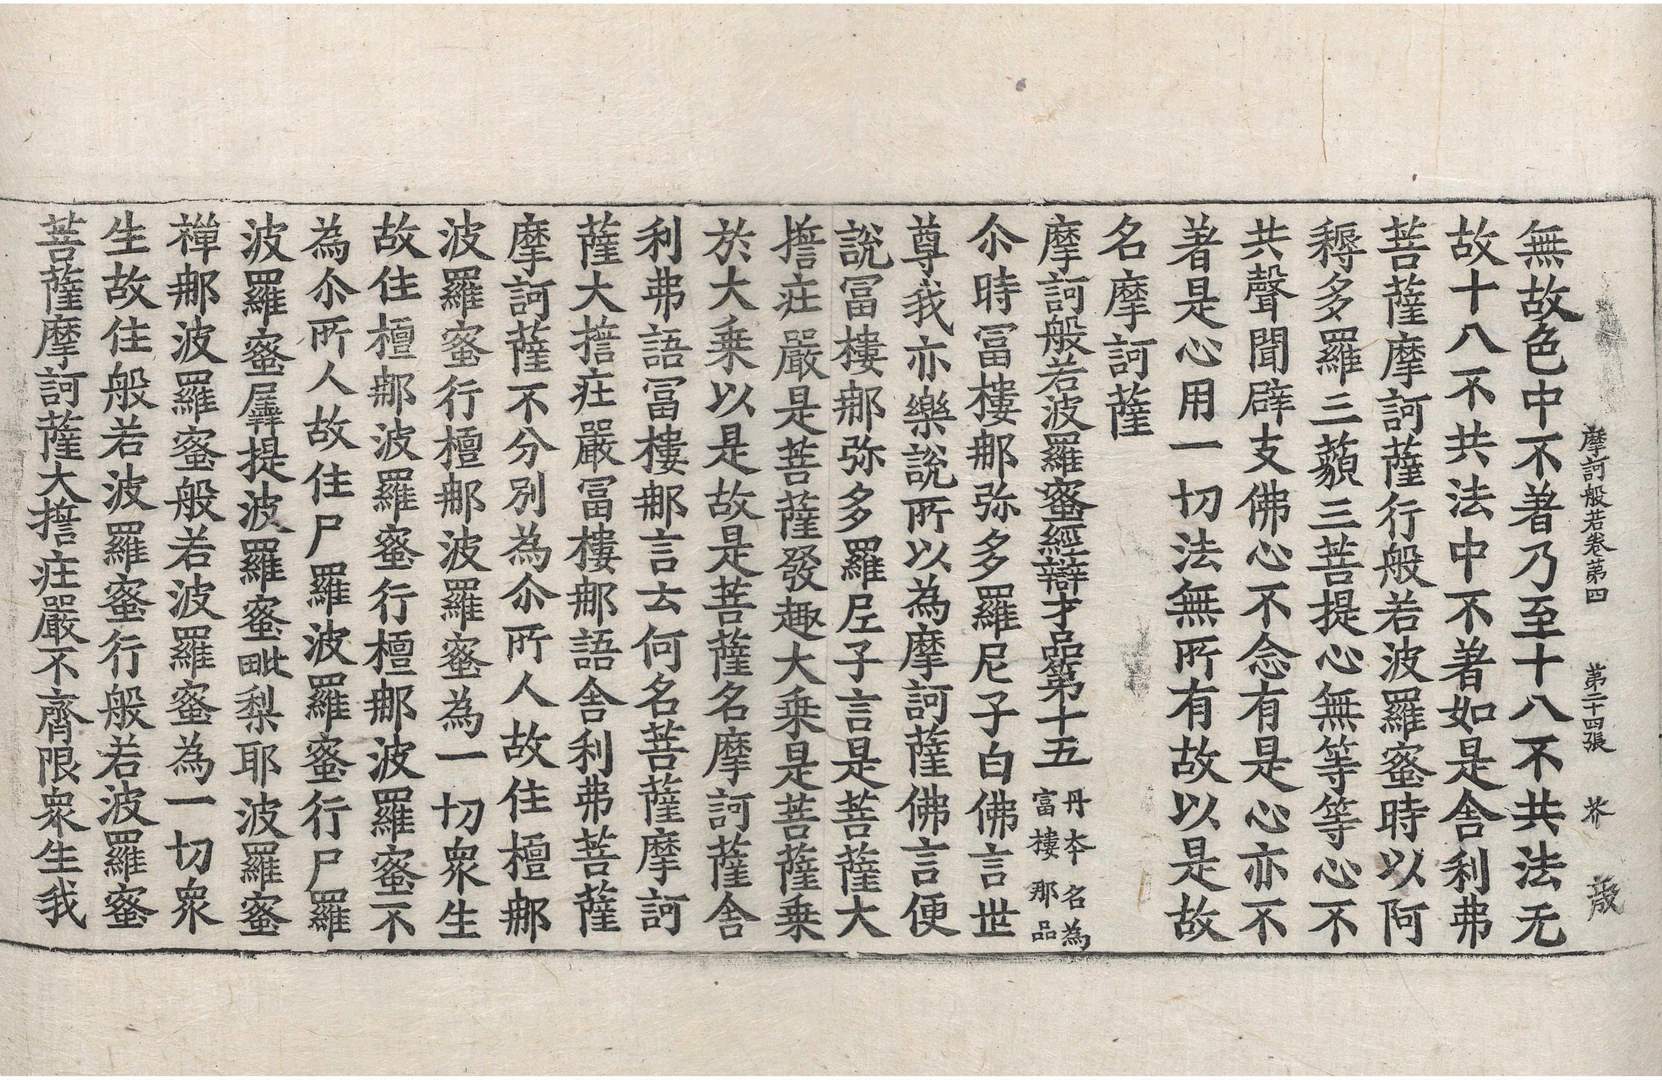 摩訶般若卷第四 第二十四張 芥
無故色中不著乃至十八不共法无
故十八不共法中不著如是舍利弗
菩薩摩訶薩行般若波羅蜜時以阿
耨多羅三藐三菩提心無等等心不
共聲聞辟支佛心不念有是心亦不
著是心用一切法無所有故以是故
名摩訶薩
摩訶般若波羅蜜經辯才品第十五 丹本名為富樓那品
尒時冨樓那弥多羅尼子白佛言世
尊我亦樂說所以為摩訶薩佛言便
說冨樓那弥多羅尼子言是菩薩大
擔庄嚴是菩薩發趣大乘是菩薩乘
於大乘以是故是菩薩名摩訶薩舍
利弗語冨樓那言云何名菩薩摩訶
薩大擔庄嚴冨樓那語舍利弗菩薩
摩訶薩不分別為尒所人故住檀那
波羅蜜行檀那波羅蜜為一切衆生
故住檀那波羅蜜行檀那波羅蜜不
為尒所人故住尸羅波羅蜜行尸羅
波羅蜜羼提波羅蜜毗梨耶波羅蜜
禪那波羅蜜般若波羅蜜為一切衆
生故住般若波羅蜜行般若波羅蜜
菩薩摩訶薩大擔庄嚴不齊限衆生我